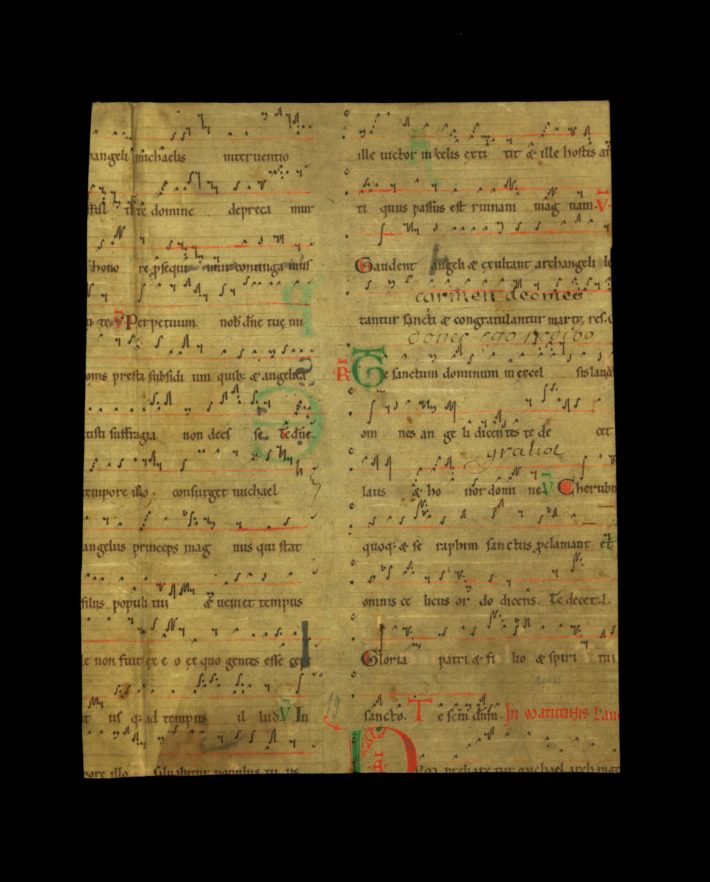 angeli michaelis interuentio
te domine depreca mur
hono re ꝑsequi mur coniunga mus
te ℣ Perpetuum nob dñe tue mi
onis presta subsidi um quib: & angelica
tisti suffragia non dees se. Te dñe.
tempore illo. consurget michael
angelus princeps mag nus qui stat
filiis populi tui & ueniet tempus
le non fuit ex e o ex quo gentes esse
us q: ad tempus il lud ℣ In
pore illo saluabitur populus tu us
ille uictor in celis exti tit & ille hostis
ti quus passus est ruinam mag nam. ℣
Gaudent angeli & exultant archangeli
carmen
tantur sancti & congratulantur martyres.
donec ego
℟ Te sanctum dominum in excel sis
om nes an ge li dicentes te de cet
gratia
laus & ho nor domi ne ℣ Cherubi
quoq; & se raphim sanctus ꝓclamant et
omnis ce licus or do dicens. Te decet. l.
Gloria patri & fi lio & spiri tui
19
sancto. Te scm dñm. In Matutinis Lau
Dum preliare tur michael archang